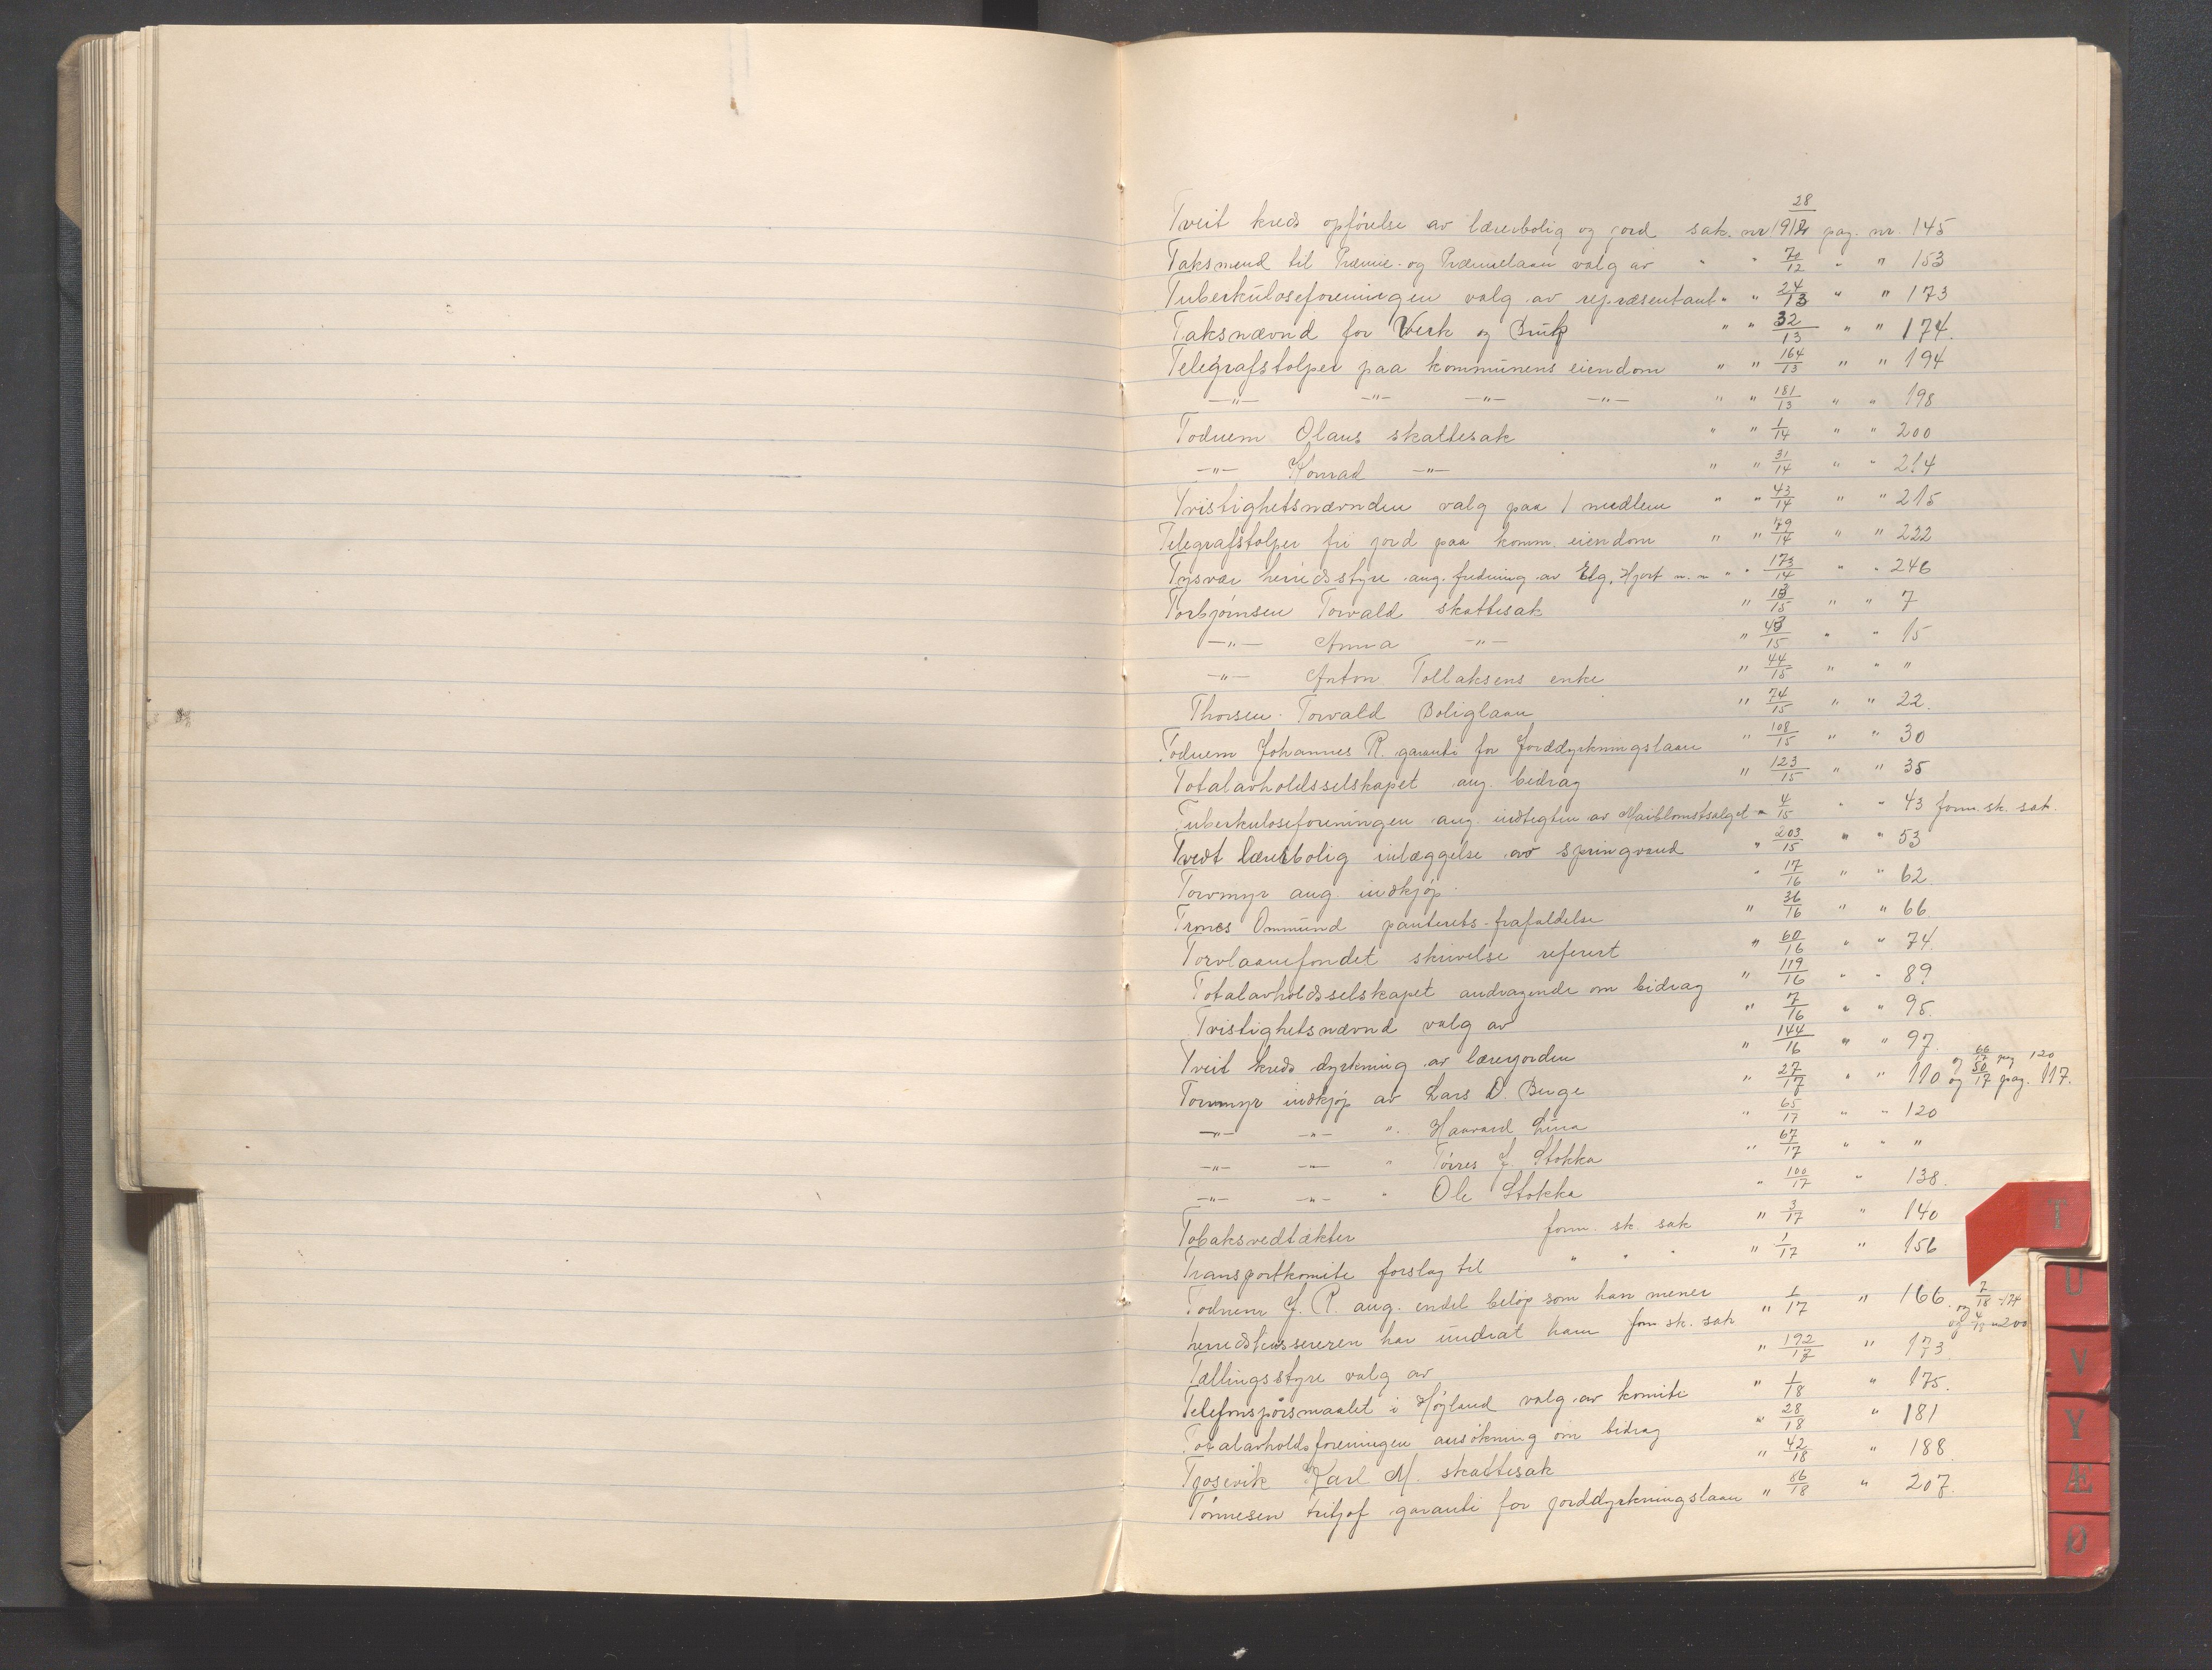 Tveit kreds opførelse av lærerbolig og jord sak. nr 28/1912 pag. nr. 145
Taksmend til Præmie- og Præmielaan valg av " " 70/12 " " 153
Tuberkuloseforeningen valg av repræsentant " " 24/13 " " 173
Taksnævnd for Verk og Bruk " " 32/13 " " 174.
Telegrafstolper paa kommunens eiendom " " 164/13 " " 194
—"— —"— —"— —"— " " 181/13 " " 198
Toduem Olaus skattesak " " 1/14 " " 200
—"— Konrad —"— " " 31/14 " " 214
Tvistighetsnævnden valg paa 1 medlem " " 43/14 " " 215
Telegrafstolper fri jord paa komm. eiendom " " 79/14 " " 222
Tysvær herredsstyre ang. fredning av Elg, Hjort m. m " " 173/14 " " 246
Torbjørnsen Torvald skattesak " 13/15 " " 7
—"— Anna —"— " 43/15 " " 15
—"— Anton Tollaksens enke " 44/15 " " "
Thorsen Torvald Boliglaan " 74/15 " " 22.
Toduem Johannes R. garanti for Jorddyrkningslaan " 108/15 " " 30
Totalavholdsselskapet ang. bidrag " 123/15 " " 35
Tuberkuloseforeningen ang. indtægten av Maiblomstsalget " 4/15 " " 43 form. sk. sak.
Tvedt lærerbolig inlæggelse av springvand " 203/15 " " 53
Torvmyr ang. indkjøp " 17/16 " " 62
Trones Ommund panterets-frafaldelse " 36/16 " " 66
Torvlaanefondet skrivelse referert " 60/16 " " 74
Totalavholdsselskapet andragende om bidrag " 119/16 " " 89
Tvistighetsnævnd valg av " 7/16 " " 95.
Tveit kreds dyrkning av lærerjorden " 144/16 " " 97.
og 66/17 pag 120
Torvmyr indkjøp av Lars O. Berge " 27/17 " " 110 og 50/17 pag. 117.
—"— —"— " Haavard Lura " 65/17 " " 120
—"— —"— " Tørres J. Stokka " 67/17 " " "
—"— —"— " Ole Stokka " 100/17 " 138.
Tobaksvedtækter form. sk. sak " 3/17 " 140
Transportkomite forslag til " " " " 1/17 " 156
Toduem J. R. ang. endel beløp som han mener
herredskassereren har undrat ham form sk. sak " 1/17 " 166. og 7/18 - 174
og 4/18 - 200
Tællingsstyre valg av " 192/17 " 173.
Telefonspørsmaalet i Høyland valg av komite " 1/18 " 175.
Totalavholdsforeningen ansøkning om bidrag " 28/18 " 181
Tjosevik Karl M. skattesak " 42/18 " 188.
Tønnesen tritjof garanti for jorddyrkningslaan " 86/18 " 207.
T
U
V
Y
Æ
Ø